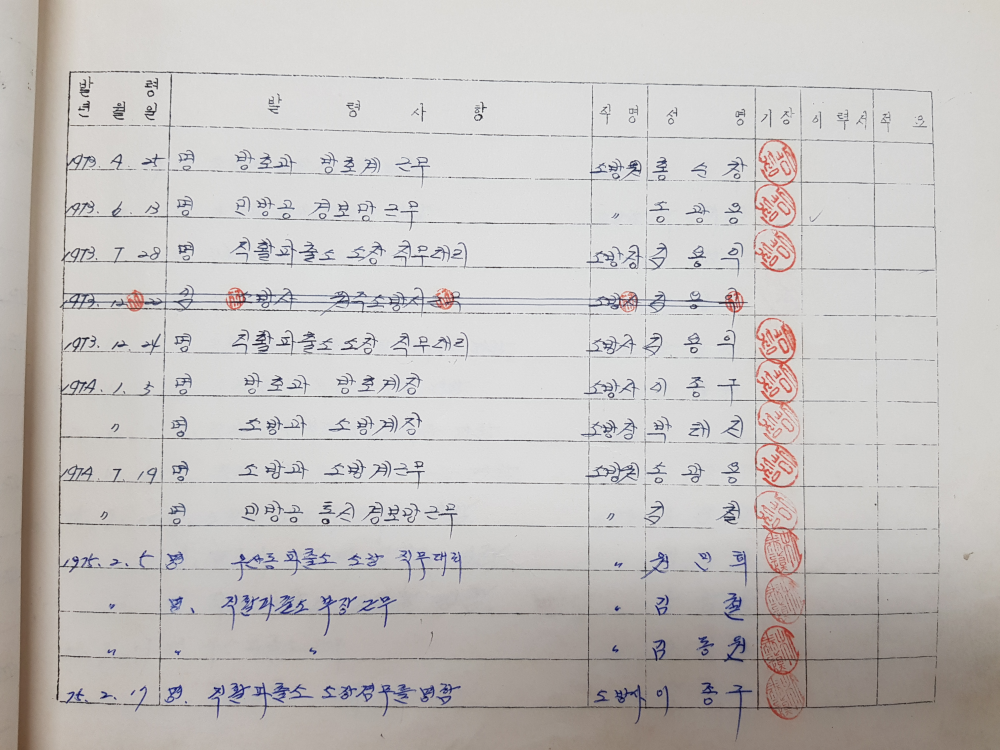 발령 년월일 발령사항 직명 성명 기장 이력서 적요
1973. 4. 25 명 방호과 방호계 근무 소방원 홍순창
1973. 6. 13 명 민방공 경보망 근무 〃 송광용
1973. 7. 28 명 직활파출소 소장 직무대리 소방장 김용익
1973. 12. 22 소방사 원주소방서 소방사 김용
1973. 12. 24 명 직활파출소 소장 직무대리 소방사 김용익
1974. 1. 5 명 방호과 방호계장 소방사 이종구
〃 명 소방과 소방계장 소방장 박래진
1974. 7. 19 명 소방과 소방계근무 소방원 송광용
〃 명 민방공 통신 경보망근무 〃 김철
1975. 2. 5 명 우산동파출소 소장 직무대리 〃 원민희
〃 명. 직활파출소 부장근무 〃 김철
〃 〃 〃 〃 김동원
75. 2. 17 명. 직활파출소 소장겸무를 명함 소방사 이종구